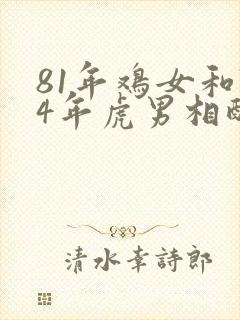 81年鸡女和
4年虎男相
清水幸詩郎